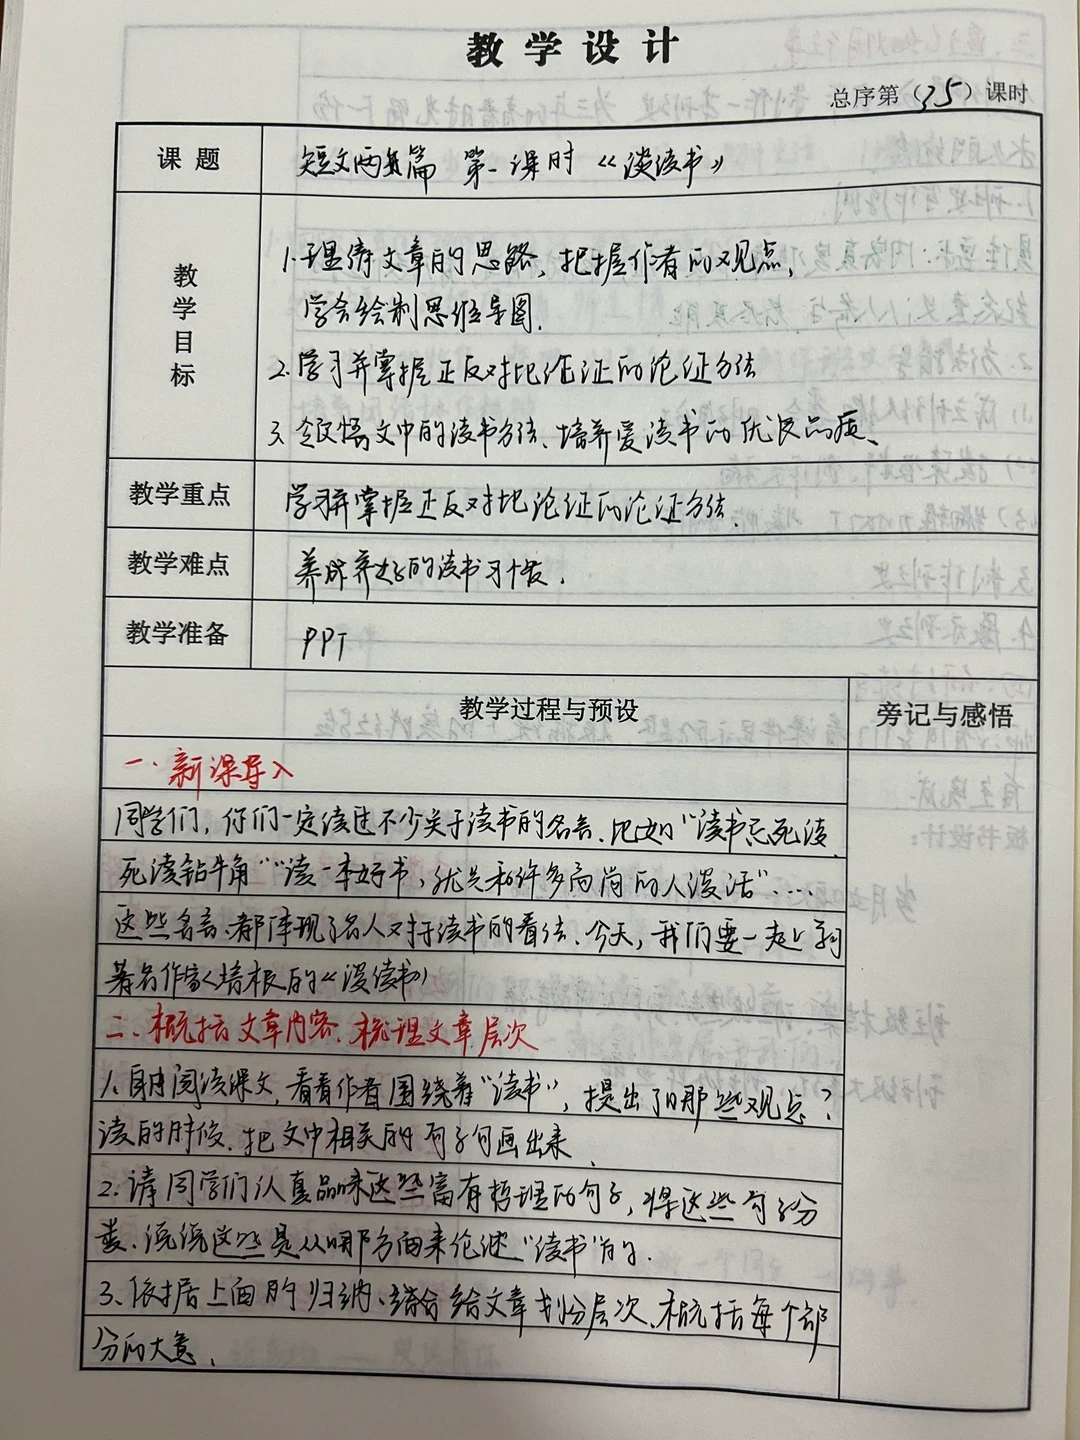 教学设计
总序第（35）课时
课题
短文两篇 第一课时《谈读书》
教学目标
1.理清文章的思路，把握作者的观点，
学会绘制思维导图.
2.学习并掌握正反对比论证的论证方法
3.领悟文中的读书方法、培养爱读书的优良品质、
教学重点
学习并掌握正反对比论证的论证方法.
教学难点
养成养好的读书习惯.
教学准备
PPT
教学过程与预设
旁记与感悟
一.新课导入
同学们，你们一定读过不少关于读书的名言.比如"读书忌死读，
死读钻牛角""读一本好书，就是和许多高尚的人谈话"……
这些名言.都体现了名人对于读书的看法.今天，我们要一起学习
著名作家培根的《谈读书》
二.概括文章内容.梳理文章层次
1.自由阅读课文，看看作者围绕着"读书"，提出了哪些观点？
读的时候.把文中相关的句子勾画出来.
2.请同学们认真品味这些富有哲理的句子，将这些句子分
类.说说这些是从哪方面来论述"读书"的.
3、依据上面的归纳、结合给文章划分层次.概括每个部
分的大意.